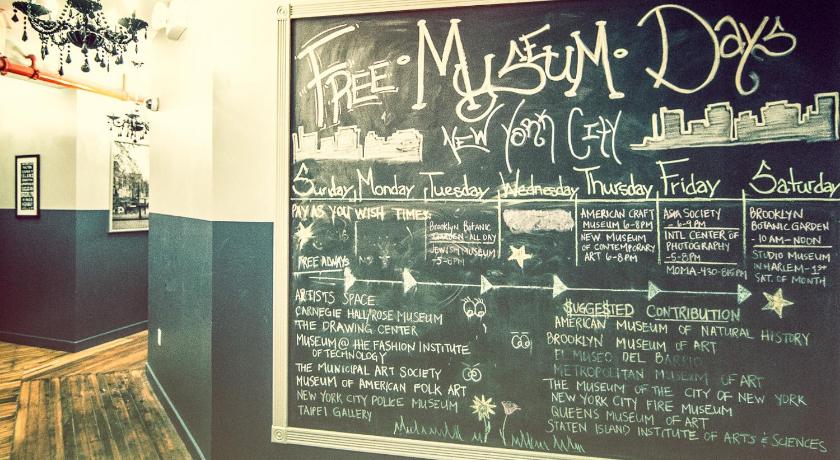 FREE · MUSEUM · DAYS
NEW YORK CITY
Sunday Monday Tuesday Wednesday Thursday Friday Saturday
PAY AS YOU WISH TIMES:
FREE ALWAYS
BROOKLYN BOTANIC
GARDEN - ALL DAY
JEWISH MUSEUM
-5-8PM
AMERICAN CRAFT
MUSEUM 6-8PM
NEW MUSEUM
OF CONTEMPORARY
ART 6-8PM
ASIA SOCIETY
- 6-9PM
INTL CENTER OF
PHOTOGRAPHY
-5-8PM
MOMA-430-815PM
BROOKLYN
BOTANIC GARDEN
- 10AM-NOON
STUDIO MUSEUM
IN HARLEM - 1ST
SAT. OF MONTH
ARTISTS SPACE
CARNEGIE HALL/ROSE MUSEUM
THE DRAWING CENTER
MUSEUM @ THE FASHION INSTITUTE
OF TECHNOLOGY
THE MUNICIPAL ART SOCIETY
MUSEUM OF AMERICAN FOLK ART
NEW YORK CITY POLICE MUSEUM
TAIPEI GALLERY
$UGGESTED CONTRIBUTION
AMERICAN MUSEUM OF NATURAL HISTORY
BROOKLYN MUSEUM OF ART
EL MUSEO DEL BARRIO
METROPOLITAN MUSEUM OF ART
THE MUSEUM OF THE CITY OF NEW YORK
NEW YORK CITY FIRE MUSEUM
QUEENS MUSEUM OF ART
STATEN ISLAND INSTITUTE OF ARTS & SCIENCES